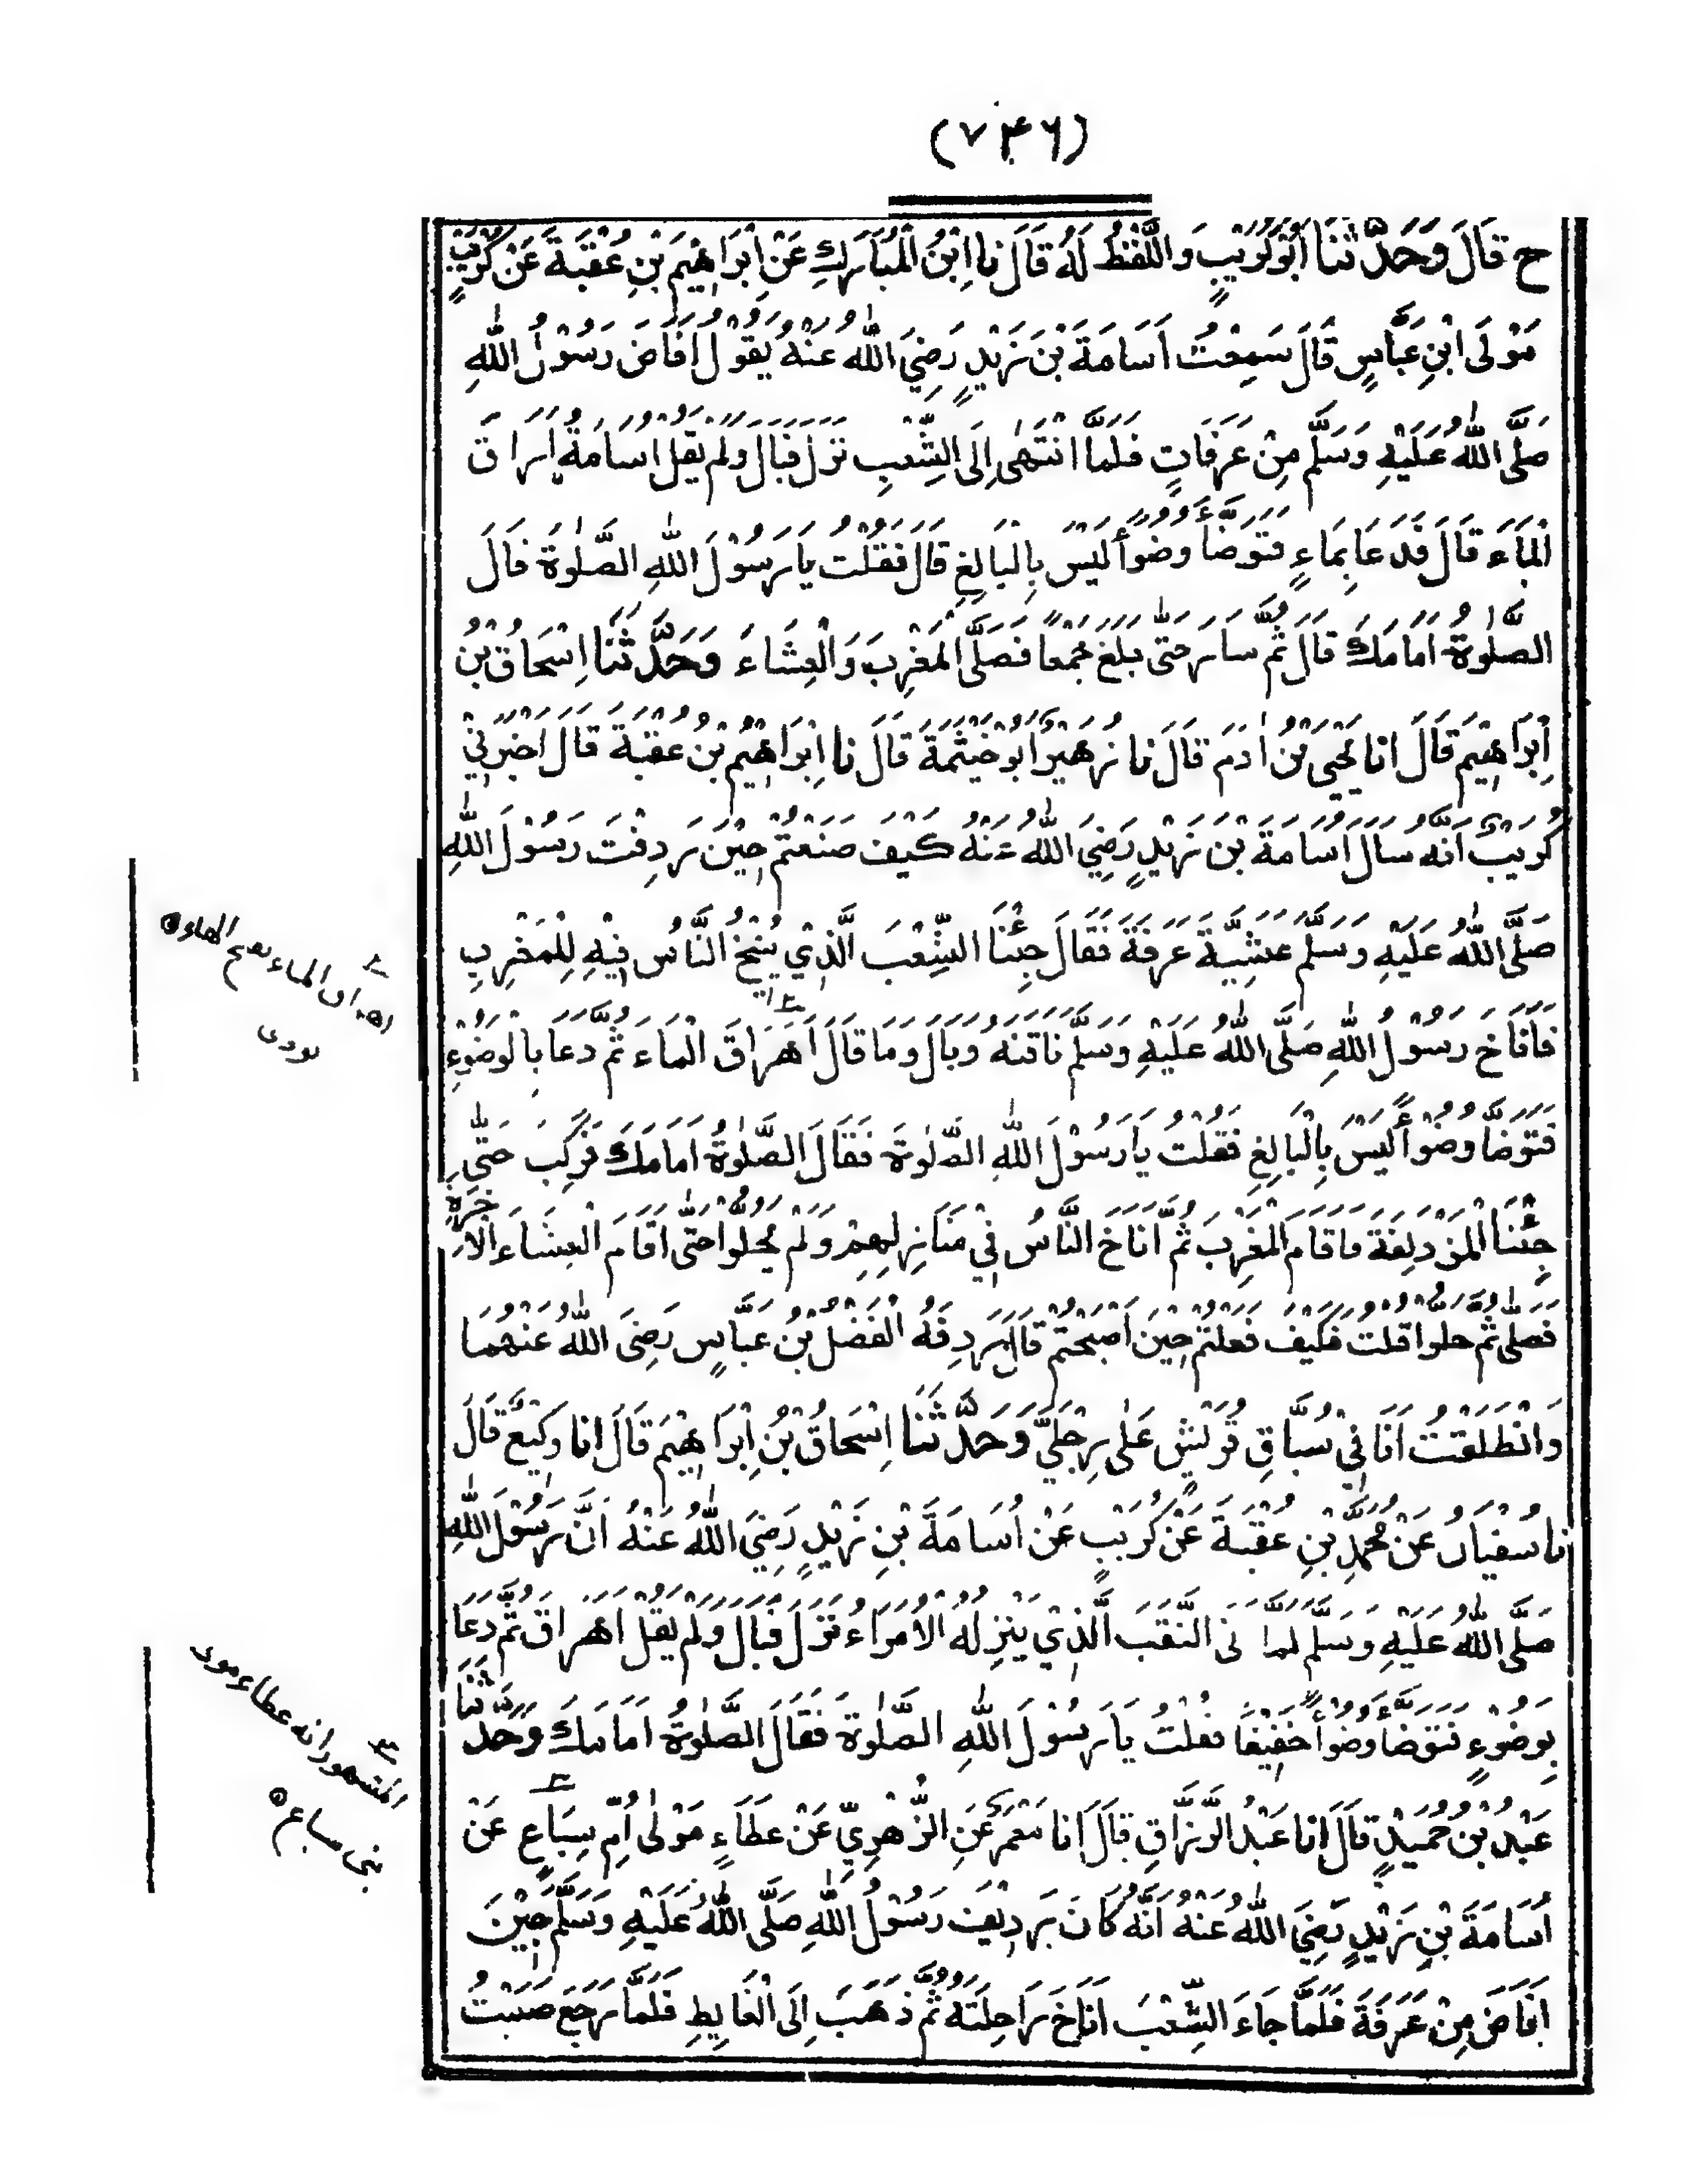 (۷۴۶)
ح قَالَ وَحَدَّثَنَا أَبُوْكُرَيْبٍ وَاللَّفْظُ لَهُ قَالَ نا ابْنُ الْمُبَارَكِ عَنْ اِبْرَاهِيْمَ بْنِ عُقْبَةَ عَنْ كُرَيْبٍ
مَوْلَى ابْنِ عَبَّاسٍ قَالَ سَمِعْتُ أُسَامَةَ بْنَ زَيْدٍ رَضِيَ اللّٰهُ عَنْهُ يَقُوْلُ اَفَاضَ رَسُوْلُ اللّٰهِ
صَلَّى اللّٰهُ عَلَيْهِ وَسَلَّمَ مِنْ عَرَفَاتٍ فَلَمَّا انْتَهٰى اِلَى الشِّعْبِ نَزَلَ فَبَالَ وَلَمْ يَقُلْ اُسَامَةُ اَرَاقَ
الْمَاءَ قَالَ فَدَعَا بِمَاءٍ فَتَوَضَّأَ وُضُوْأً لَيْسَ بِالْبَالِغِ قَالَ فَقُلْتُ يَا رَسُوْلَ اللّٰهِ الصَّلٰوةَ قَالَ
الصَّلٰوةُ اَمَامَكَ قَالَ ثُمَّ سَارَ حَتّٰى بَلَغَ جَمْعًا فَصَلَّى الْمَغْرِبَ وَالْعِشَاءَ وَحَدَّثَنَا اِسْحَاقُ بْنُ
اِبْرَاهِيْمَ قَالَ انا يَحْيَى بْنُ اٰدَمَ قَالَ نا زُهَيْرٌ اَبُوْ خَيْثَمَةَ قَالَ نا اِبْرَاهِيْمُ بْنُ عُقْبَةَ قَالَ اَخْبَرَنِيْ
كُرَيْبٌ اَنَّهُ سَاَلَ اُسَامَةَ بْنَ زَيْدٍ رَضِيَ اللّٰهُ عَنْهُ كَيْفَ صَنَعْتُمْ حِيْنَ رَدِفْتَ رَسُوْلَ اللّٰهِ
صَلَّى اللّٰهُ عَلَيْهِ وَسَلَّمَ عَشِيَّةَ عَرَفَةَ فَقَالَ جِئْنَا الشِّعْبَ الَّذِيْ يُنِيْخُ النَّاسُ فِيْهِ لِلْمَغْرِبِ
فَاَنَاخَ رَسُوْلُ اللّٰهِ صَلَّى اللّٰهُ عَلَيْهِ وَسَلَّمَ نَاقَتَهُ وَبَالَ وَمَا قَالَ اَهَرَاقَ الْمَاءَ ثُمَّ دَعَا بِالْوَضُوْءِ
فَتَوَضَّأَ وُضُوْأً لَيْسَ بِالْبَالِغِ فَقُلْتُ يَا رَسُوْلَ اللّٰهِ الصَّلٰوةَ فَقَالَ الصَّلٰوةُ اَمَامَكَ فَرَكِبَ حَتّٰى
جِئْنَا الْمُزْدَلِفَةَ فَاَقَامَ الْمَغْرِبَ ثُمَّ اَنَاخَ النَّاسُ فِيْ مَنَازِلِهِمْ وَلَمْ يَحُلُّوْا حَتّٰى اَقَامَ الْعِشَاءَ الْاٰخِرَةَ
فَصَلّٰى ثُمَّ حَلُّوْا قُلْتُ فَكَيْفَ فَعَلْتُمْ حِيْنَ اَصْبَحْتُمْ قَالَ رَدِفَهُ الْفَضْلُ بْنُ عَبَّاسٍ رَضِيَ اللّٰهُ عَنْهُمَا
وَانْطَلَقْتُ اَنَا فِيْ سُبَّاقِ قُرَيْشٍ عَلٰى رِجْلَيَّ وَحَدَّثَنَا اِسْحَاقُ بْنُ اِبْرَاهِيْمَ قَالَ انا وَكِيْعٌ قَالَ
نا سُفْيَانُ عَنْ مُحَمَّدِ بْنِ عُقْبَةَ عَنْ كُرَيْبٍ عَنْ اُسَامَةَ بْنِ زَيْدٍ رَضِيَ اللّٰهُ عَنْهُ اَنَّ رَسُوْلَ اللّٰهِ
صَلَّى اللّٰهُ عَلَيْهِ وَسَلَّمَ لَمَّا النَّقْبَ الَّذِيْ يَنْزِلُهُ الْاُمَرَاءُ نَزَلَ فَبَالَ وَلَمْ يَقُلْ اَهَرَاقَ ثُمَّ دَعَا
بِوَضُوْءٍ فَتَوَضَّأَ وُضُوْأً خَفِيْفًا فَقُلْتُ يَا رَسُوْلَ اللّٰهِ الصَّلٰوةَ فَقَالَ الصَّلٰوةُ اَمَامَكَ وَحَدَّثَنَا
عَبْدُ بْنُ حُمَيْدٍ قَالَ انا عَبْدُ الرَّزَّاقِ قَالَ اَنَا مَعْمَرٌ عَنِ الزُّهْرِيِّ عَنْ عَطَاءٍ مَوْلٰى اُمِّ سِبَاعٍ عَنْ
اُسَامَةَ بْنِ زَيْدٍ رَضِيَ اللّٰهُ عَنْهُ اَنَّهُ كَانَ رَدِيْفَ رَسُوْلِ اللّٰهِ صَلَّى اللّٰهُ عَلَيْهِ وَسَلَّمَ حِيْنَ
اَفَاضَ مِنْ عَرَفَةَ فَلَمَّا جَاءَ الشِّعْبَ اَنَاخَ رَاحِلَتَهُ ثُمَّ ذَهَبَ اِلَى الْغَايِطِ فَلَمَّا رَجَعَ صَبَبْتُ
اهراق الماء بفتح الهاء
نووى
المشهور انه عطاء مولى
بنى سباع